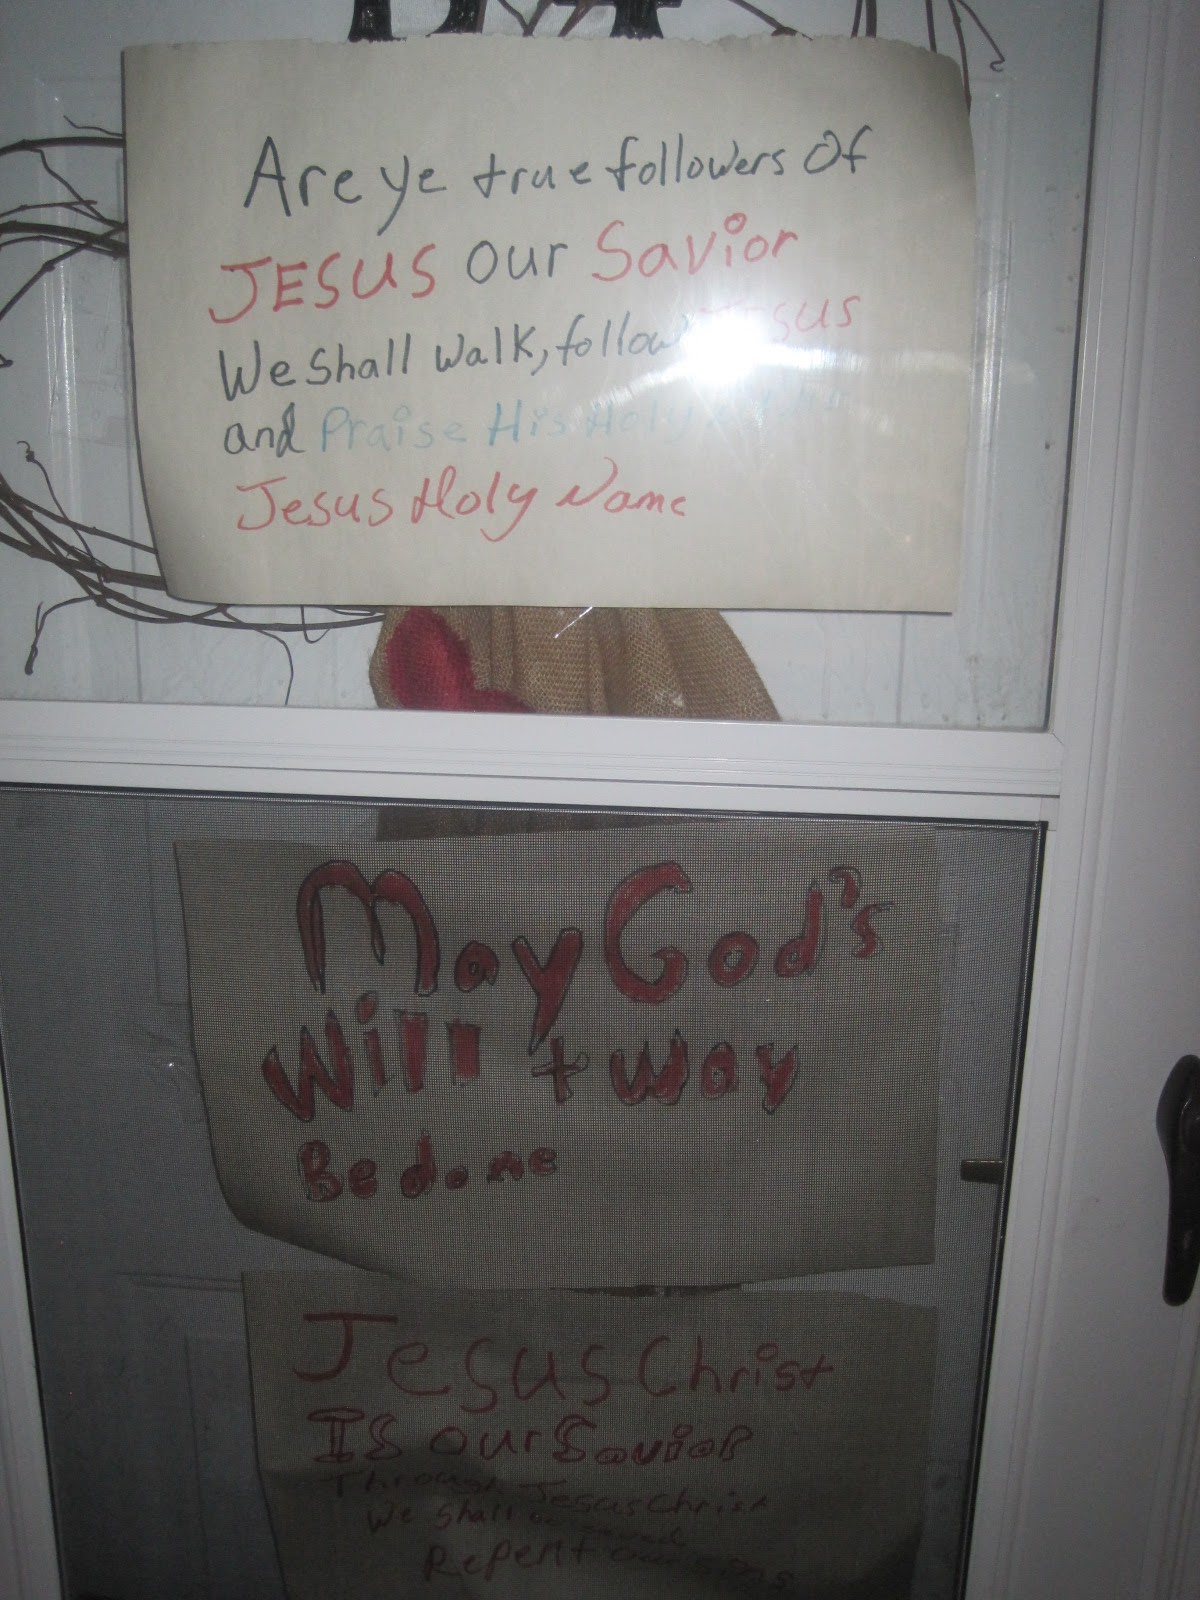 Are ye true followers Of
JESUS our Savior
We shall walk, follow Jesus
and Praise His Holy
Jesus Holy Name
May God's
Will + Way
Be done
Jesus Christ
Is our Savior
Through Jesus Christ
We shall be saved
Repent our sins